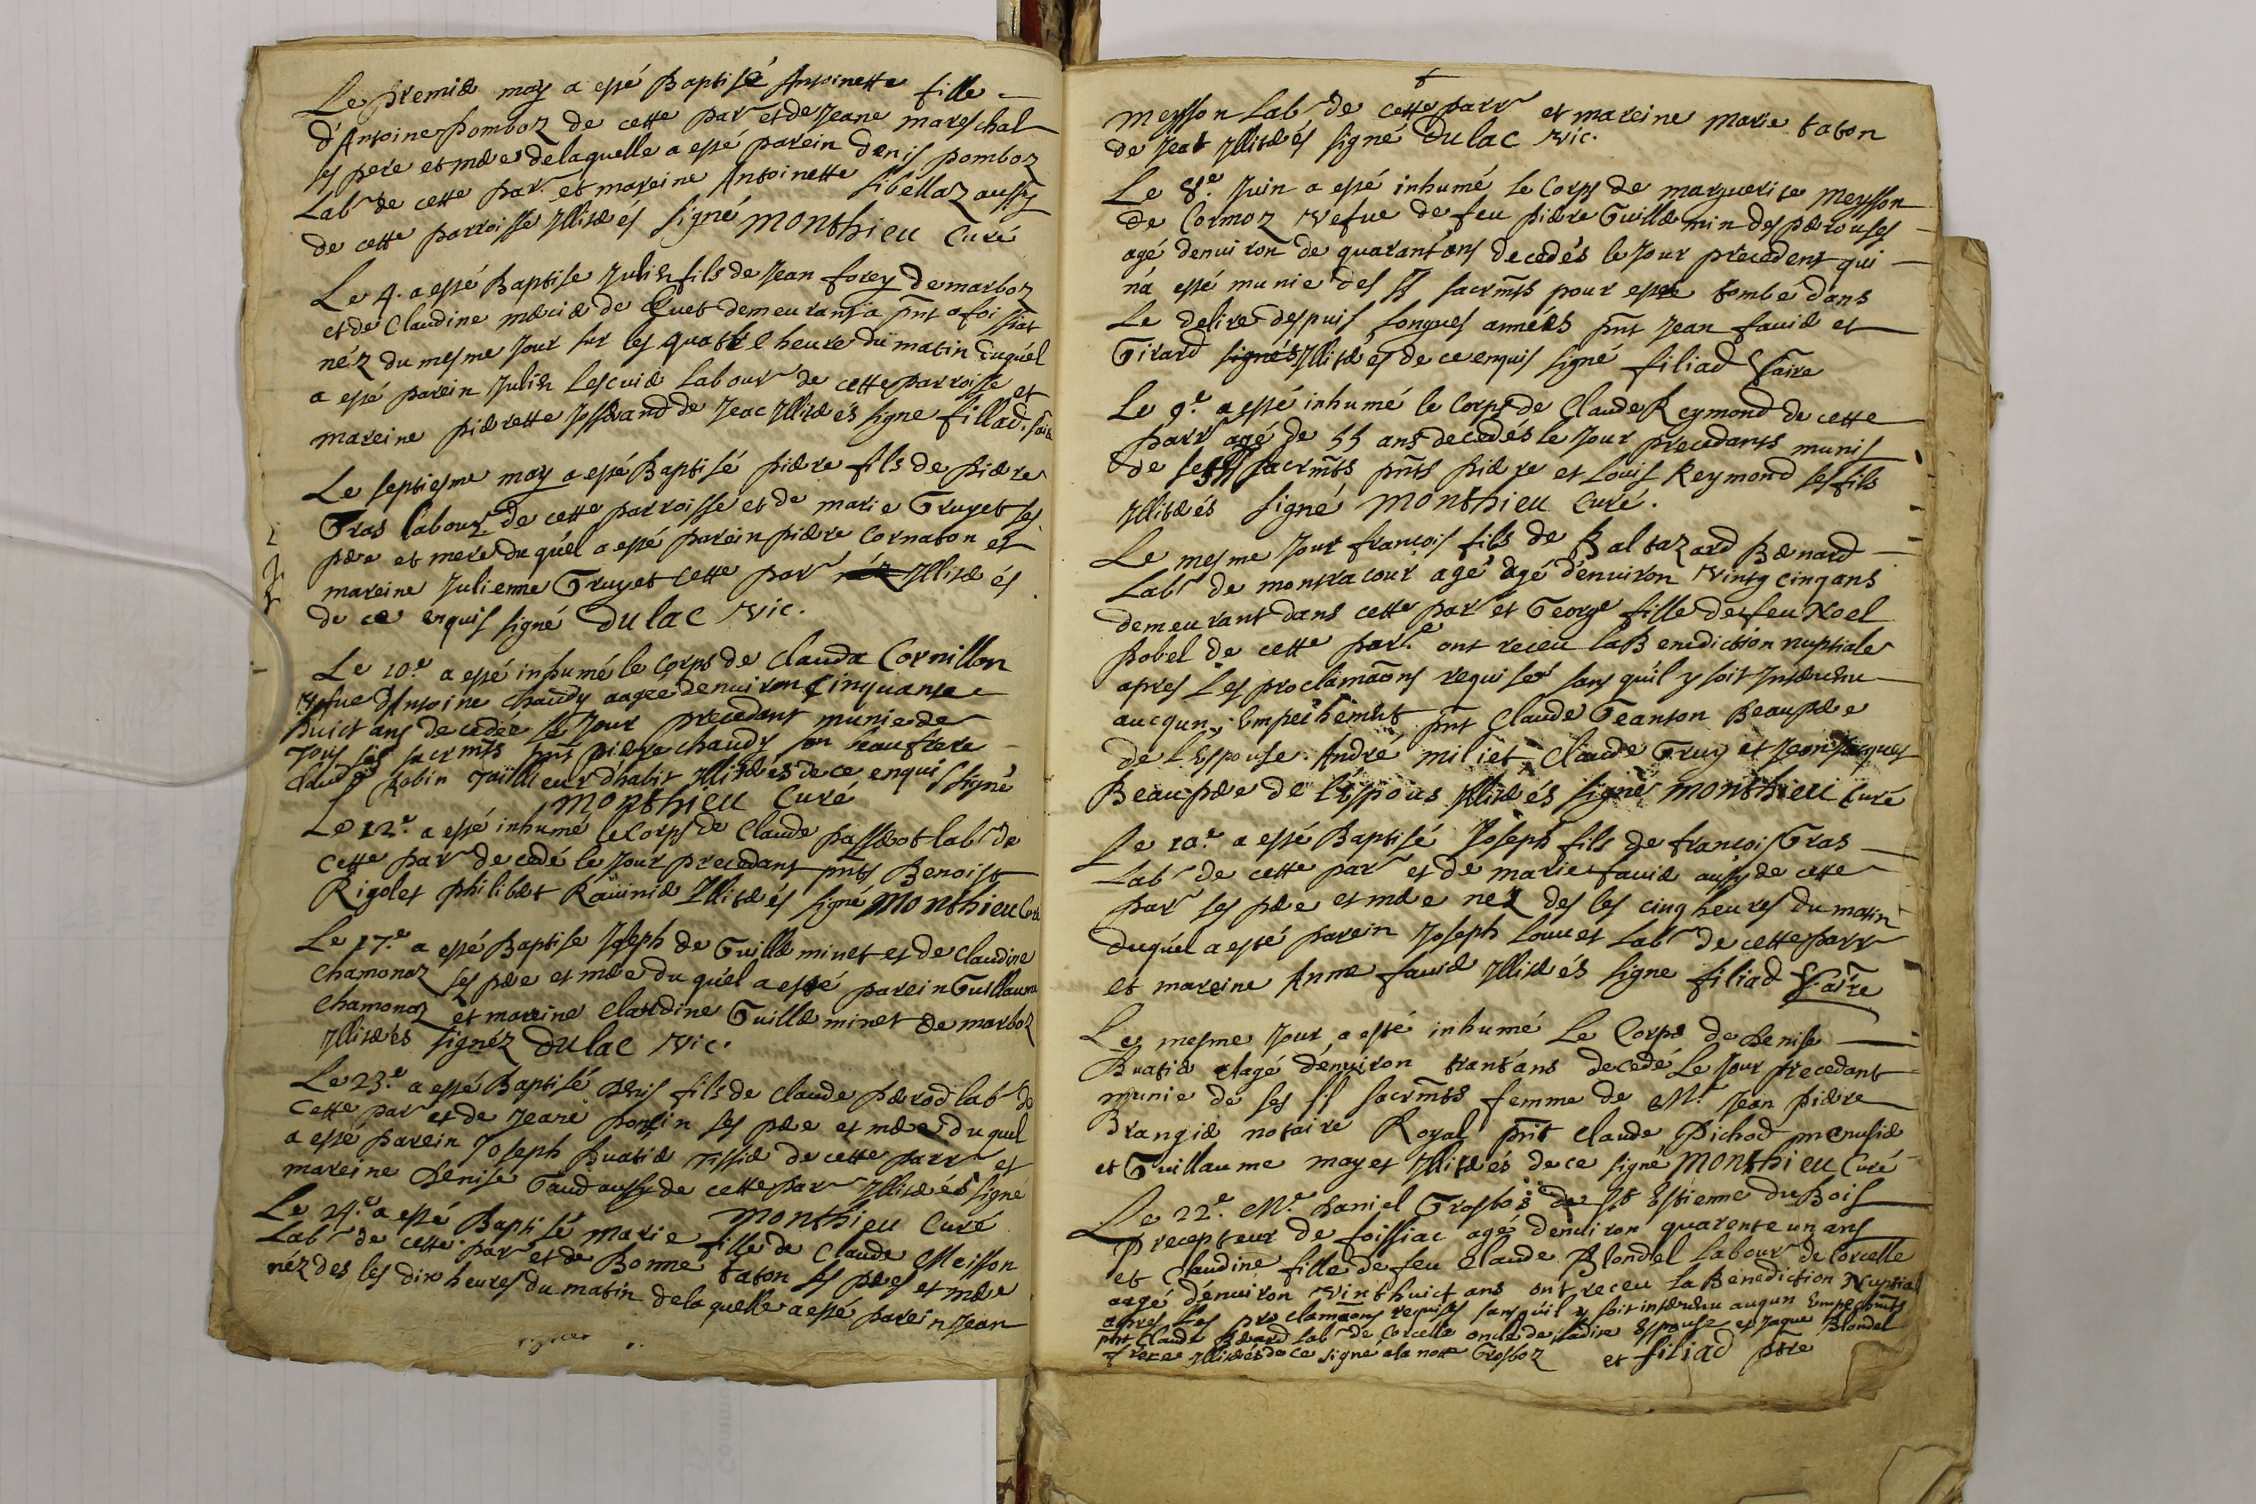 Le premier may a esté Baptisé Antoinette fille
d'Antoine Pomboz de cette parr et de Jeane mareschal
ses pere et mere de laquelle a esté parein denis pomboz
Labr de cette parr et mareine Antoinette Sibellaz aussy
de cette parroisse Illiterés signé Monthieu Curé
Le 4. a esté Baptise Julien fils de Jean forey de marboz
et de Claudine mercier de Cuet demeurant a pnt a foissiat
néz du mesme jour sur les quattre heure du matin duquel
a esté parein Julien Lescuier Labourr de cette parroisse et
mareine pierrette Josserand de Jeac Illiterés signe filliad. Vaire
Le septiesme may a esté Baptisé pierre fils de pierre
Gras labourr de cette parroisse et de marie Gruyet ses
pere et mere duquel a esté parein pierre Cornaton et
mareine Julienne Gruyet cette parr Illiterés
de ce enquis signé Dulac Vic.
Le 10.e a esté inhumé le Corps de Clauda Cornillon
Vefue d'Antoine Chaudy aagée denuiron Cinquante
huict ans decedée le Jour precedant munie de
tous ses sacrmts pnt pierre chaudy son beaufrere
Claude Robin tailleur d'habit Illiterés de ce enquis signé
Monthieu Curé
Le 12.e a esté inhumé le Corps de Claude passerot labr de
cette parr decedé le Jour precedant pnts Benoist
Rigolet philibert Rauinier Illiterés signé Monthieu Curé
Le 17.e a esté Baptise Joseph de Guilleminet et de Claudine
Chamonaz ses pere et mere duquel a esté parein Guillaume
Chamonaz et mareine Claudine Guilleminet de marboz
Illiterés signéz Dulac Vic.
Le 23.e a esté Baptisé Denis fils de Claude perrod labr de
cette parr et de Jeane poncin ses pere et mere duquel
a esté parein Joseph buatier Tissier de cette parr et
mareine Denise Gaud aussy de cette parr Illiterés signé
Monthieu Curé
Le 24.e a esté Baptisé marie fille de Claude Meisson
Labr de cette parr et de Bonne taton ses peres et mere
néz des les dix heures du matin de laquelle a esté parein Jean
Meysson Labr de cette parr et mareine marie taton
de Jeat Illiterés signé Dulac Vic.
Le 8.e Juin a esté inhumé le Corps de marguerite Meysson
de Cormoz Vefue de feu pierre Guillemin des perouses
agé denuiron de quarant'ans decedés le Jour precedent qui
n'a esté munie des SS sacrmts pour estre tombé dans
Le delire despuis longues années pnt Jean fauier et
Girard signés Illiterés de ce enquis signé filiad Vaire
Le 9.e a esté inhumé le Corps de Claude Reymond de cette
parr agé de 55 ans decedés le Jour precedants munis
de ses SS sacrmts pnts pierre et Louis Reymond ses fils
Illiterés signé Monthieu Curé.
Le mesme Jour francois fils de Baltazard Benard
Labr de montracour agé agé d'enuiron Vingt cinq ans
demeurant dans cette parr et George fille de feu Noel
Bobel de cette parr.e ont receu la Benediction nuptiale
apres Les proclamaons requises sans qu'il y soit Interuenu
aucqun Empechement pnt Claude Teanton Beaupere
de l'Espouse André miliet Claude Gruy et Jean Jacques
Beaupere de l'Espous Illiterés signé Monthieu Curé
Le 10.e a esté Baptisé Joseph fils de francois Gras
Labr de cette parr et de marie fauier aussy de cette
parr ses pere et mere nez des les cinq heures du matin
duquel a esté parein Joseph Louuet Labr de cette parr
et mareine Anne fauier Illiterés signe filiad Vaire
Le mesme Jour a esté inhumé Le Corps de Denise
Buatier agé d'enuiron trant'ans decedé Le Jour precedant
munie de ses SS sacrmts femme de Mr. Jean pierre
Brangier notaire Royal pnt Claude Pichod menusier
et Guillaume mayet Illiterés de ce signé Monthieu Curé
Le 22.e M.e Daniel Grosbos de St Estienne du Bois
precepteur de foissiac agé denuiron quarente un ans
et Claudine fille de feu Claude Blondel Labourr de Corcelle
aagé d'enuiron vint'huict ans ont receu la Benediction Nuptial
apres Les proclamaons requises sans qu'il y soit interuenu auqun Empechmts
pnt Claude Berard labr de Corcelle oncle de ladite Espouse et Jaque Blondel
frere Illiterés de ce signé a la notte Grosboz et filiad ptre